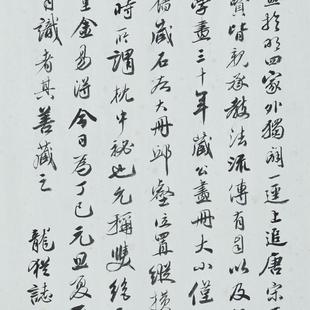 於明四家外獨闢一逕上追唐宋
賢皆親承教法流傳有自以及
學畫三十年藏公畫冊大小僅
舊藏石大冊邱壑位置縱橫
時所謂枕中秘也尤稱雙絕
金易得今日為丁巳元旦夏
日識者其善藏之 龍 誌